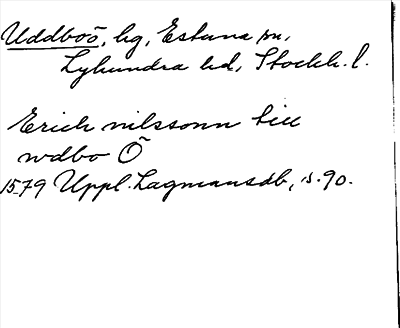 Uddboö, hg, Estuna sn,
Lyhundra hd, Stockh. l.
Erich nilssonn till
wdbo Ö
1579 Uppl. Lagmansdb, s. 90.